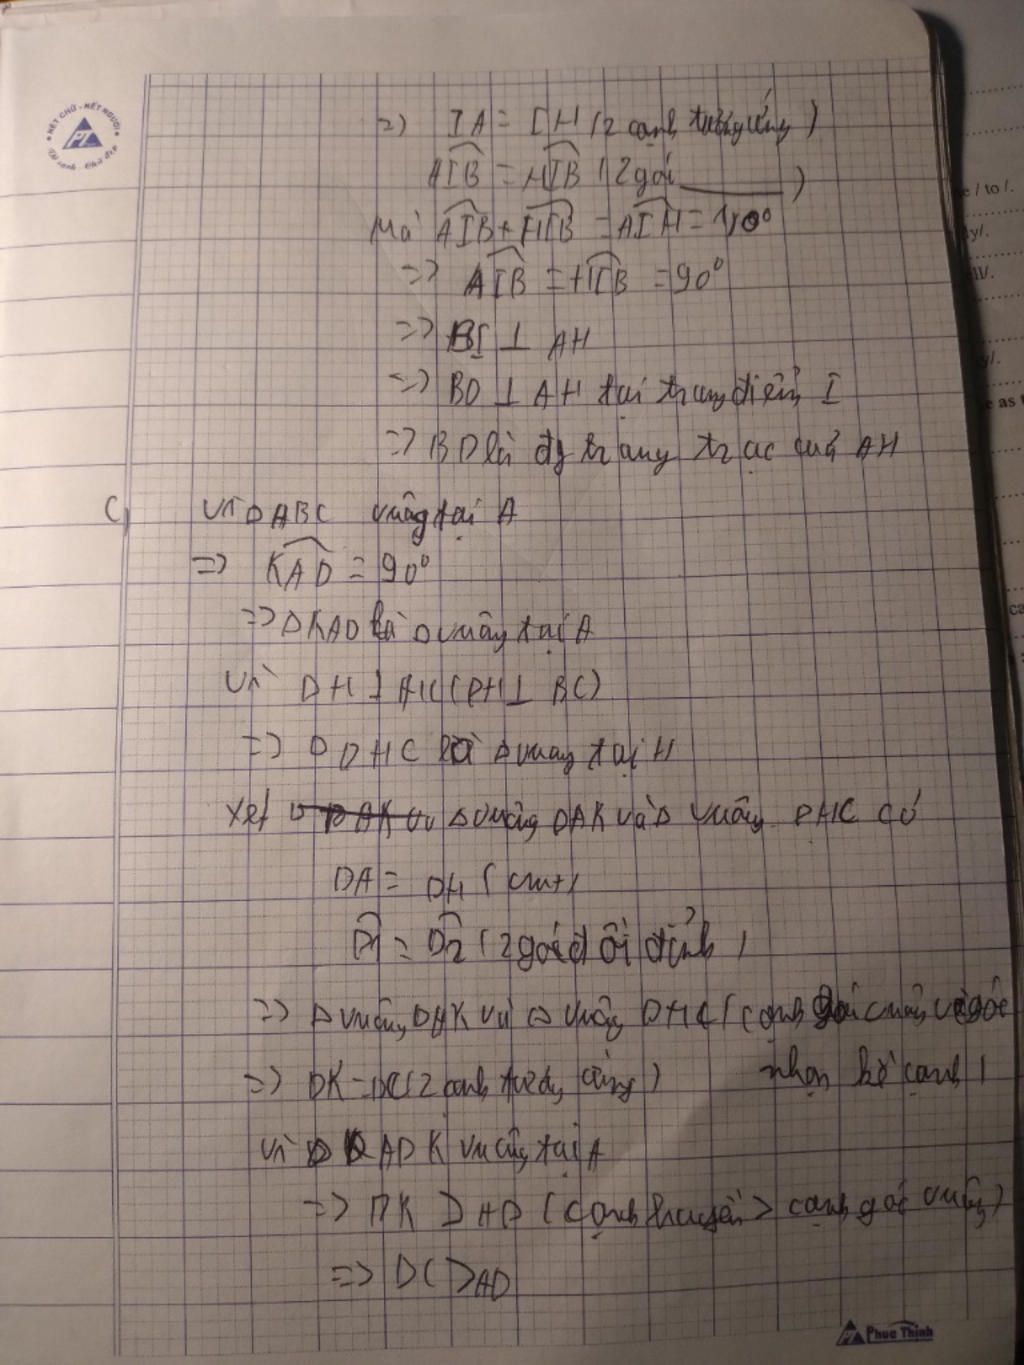 NÉT CHỮ - NẾT NGƯỜI
=> IA = IH (2 cạnh tương ứng)
AIB = HIB (2 góc ______)
Mà AIB + HIB = AIH = 180°
=> AIB = HIB = 90°
=> BI ⊥ AH
=> BD ⊥ AH tại trung điểm I
=> BD là đg trung trực của AH
C) Vì ΔABC vuông tại A
=> KAD = 90°
=> ΔKAD là Δ vuông tại A
Vì DH ⊥ HC (DH ⊥ BC)
=> ΔDHC là Δ vuông tại H
Xét Δ vuông DAK và Δ vuông DHC có
DA = DH (cmt)
D1 = D2 (2 góc đối đỉnh)
=> Δ vuông DAK và Δ vuông DHC (cạnh góc vuông và góc
nhọn kề cạnh)
=> DK = DC (2 cạnh tương ứng)
Vì Δ ADK vuông tại A
=> DK > AD (cạnh huyền > cạnh góc vuông)
=> DC > AD
Phuc Thinh